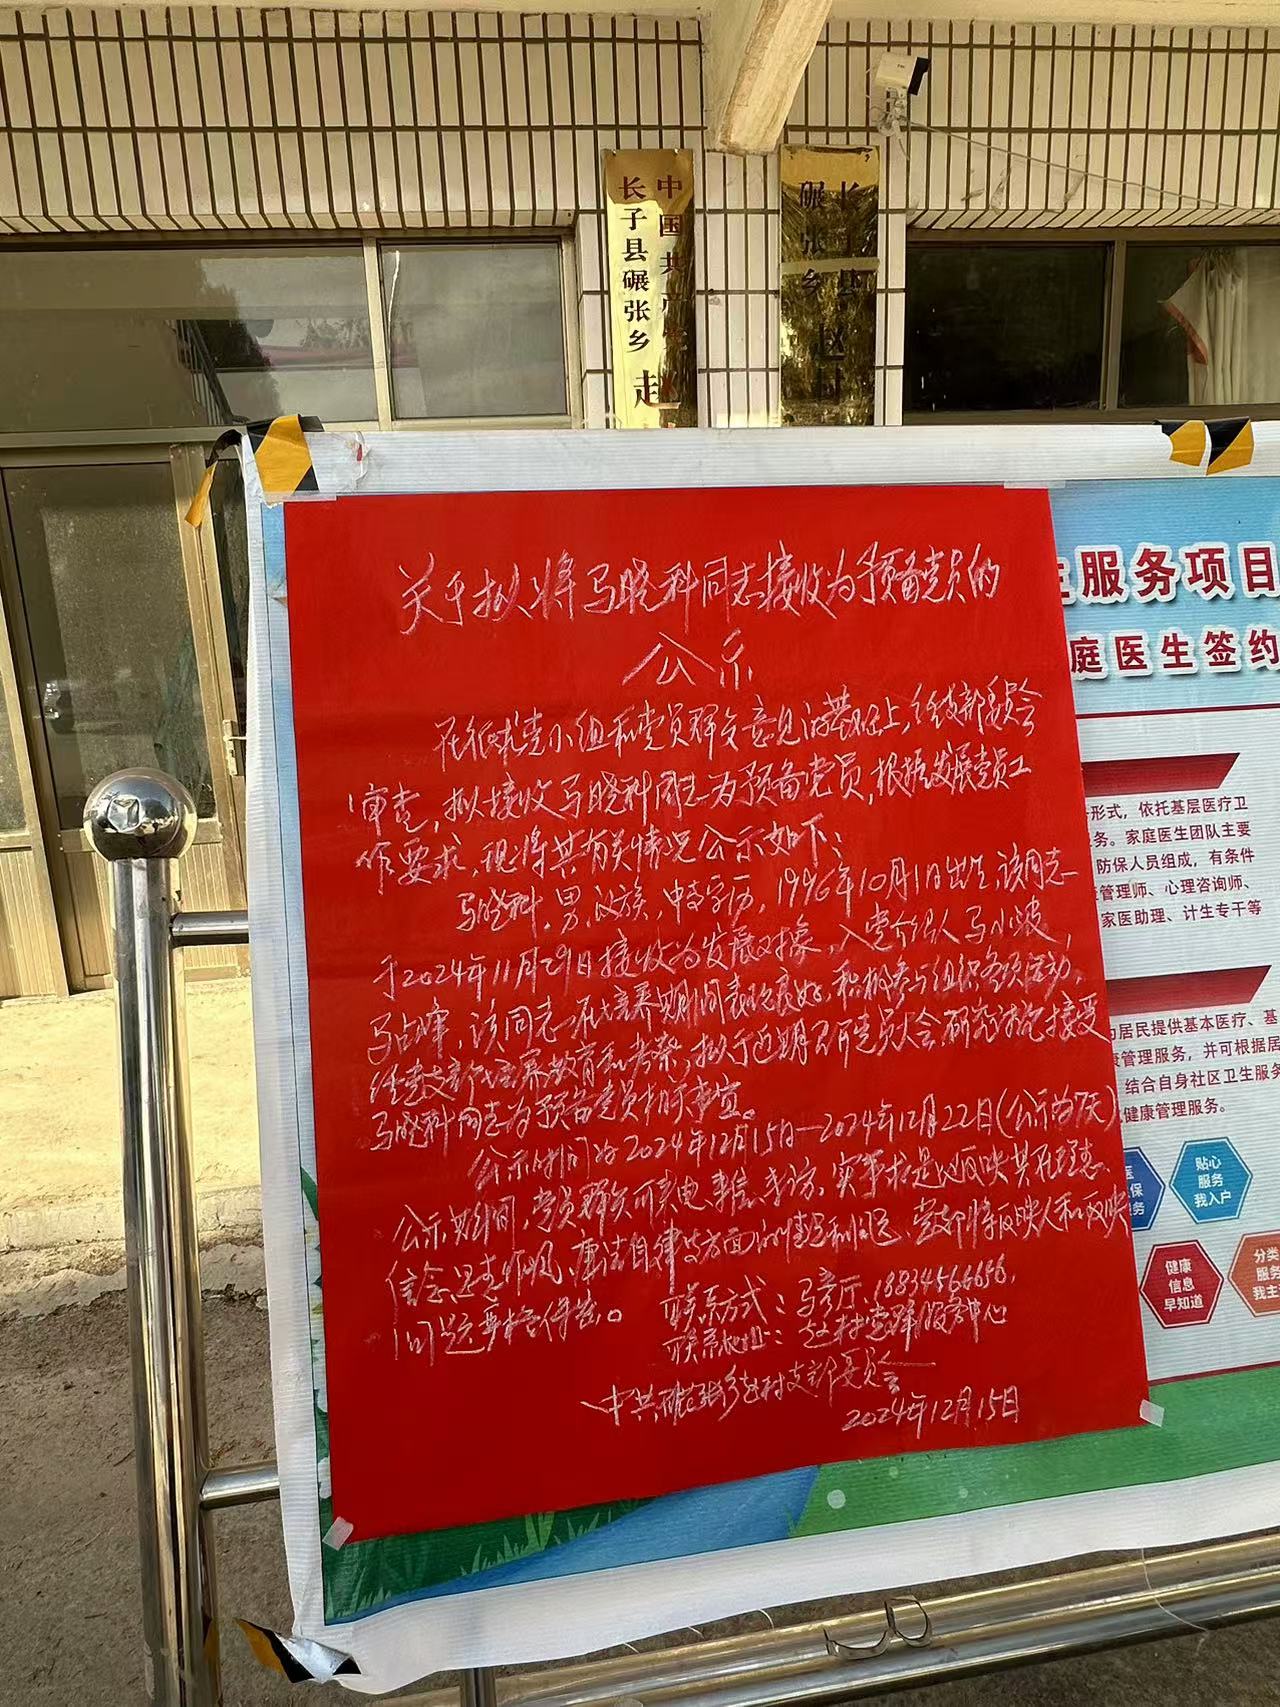 中国共产党
长子县碾张乡赵
长子县
碾张乡赵村
关于拟将马晓科同志接收为预备党员的
公示
在征求党小组和党员群众意见的基础上,经支部委员会
审查,拟接收马晓科同志为预备党员,根据发展党员工
作要求,现将其有关情况公示如下:
马晓科,男,汉族,中专学历,1996年10月1日出生,该同志
于2024年11月29日接收为发展对象,入党介绍人马小波,
马占峰,该同志在培养期间表现良好,积极参与组织各项活动,
经党支部培养教育和考察,拟于近期召开党员大会研究讨论接受
马晓科同志为预备党员相关事宜。
公示时间为2024年12月15日—2024年12月22日(公示为7天)
公示期间,党员群众可来电、来信、来访,实事求是地反映其在理想
信念、思想作风、廉洁自律等方面的情况和问题、党支部将对反映人和反映
问题严格保密。 联系方式:马彦斤、18834566656,
联系地址:赵村党群服务中心
中共碾张乡赵村支部委员会
2024年12月15日
生服务项目
庭医生签约
形式,依托基层医疗卫
务。家庭医生团队主要
防保人员组成,有条件
管理师、心理咨询师、
家医助理、计生专干等
居民提供基本医疗、基
康管理服务,并可根据居
结合自身社区卫生服务
健康管理服务。
医
保
务
贴心
服务
我入户
健康
信息
早知道
分类
服务
我主